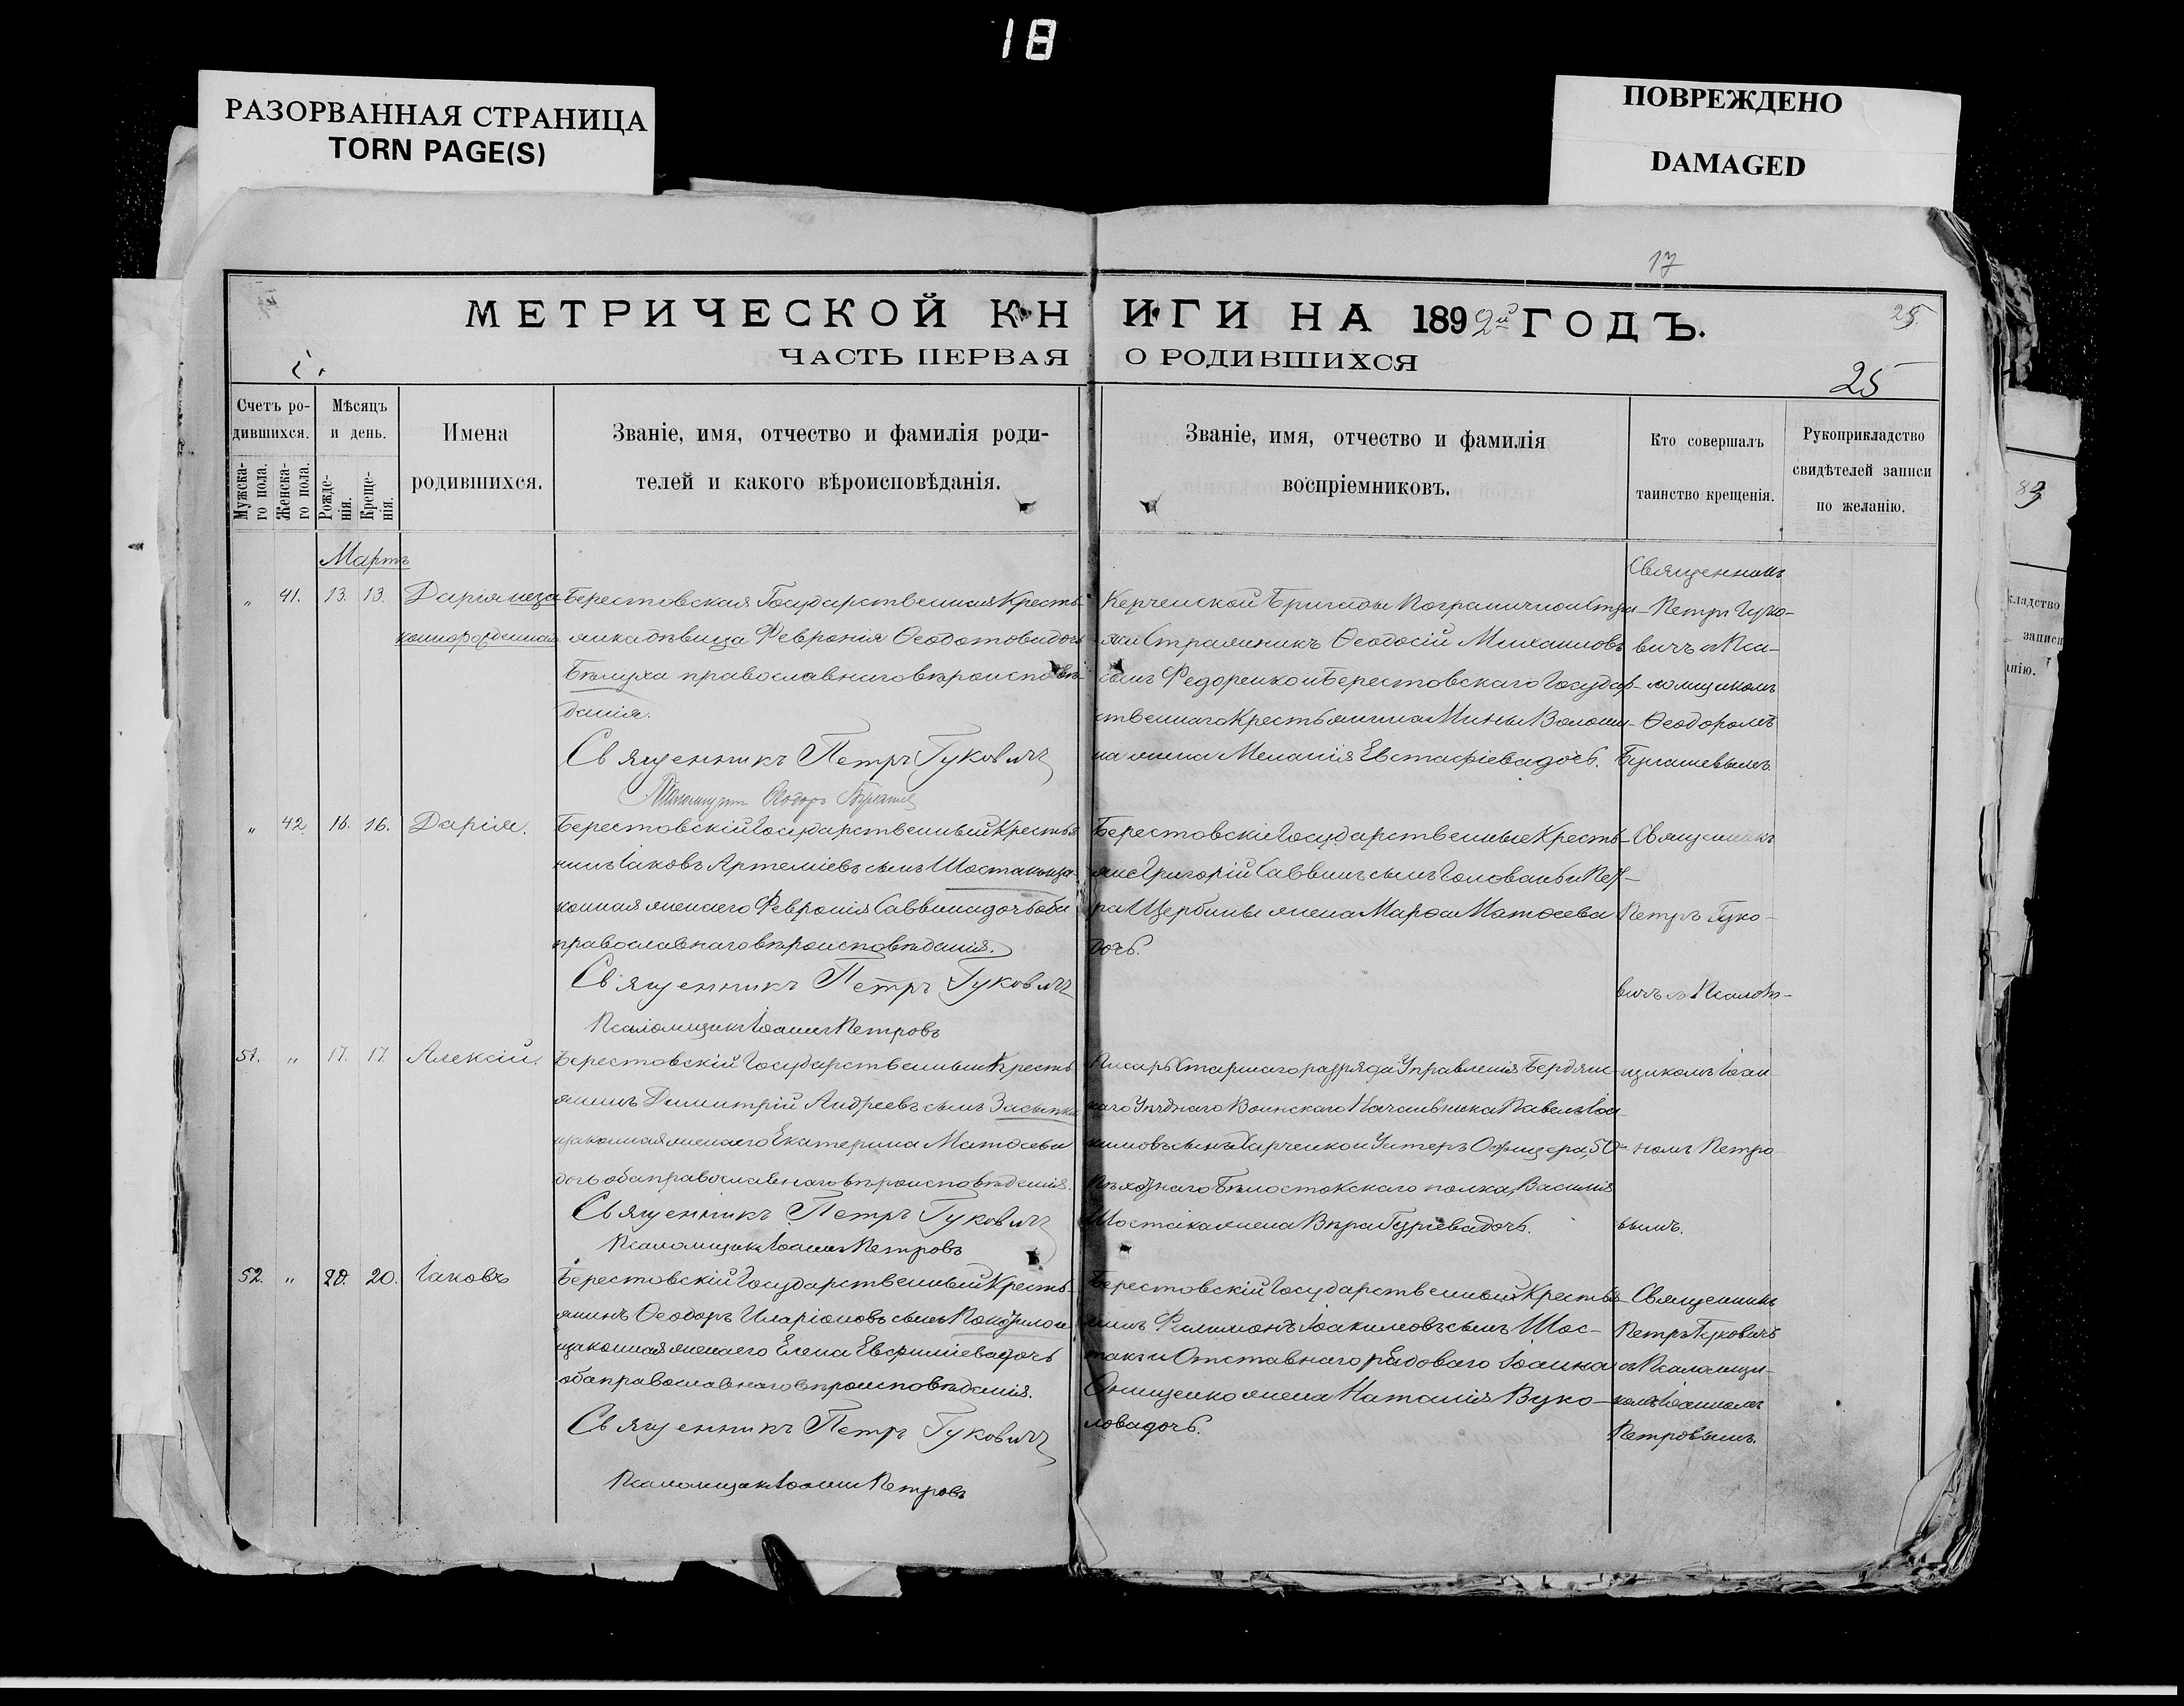 18
РАЗОРВАННАЯ СТРАНИЦА
TORN PAGE(S)
ПОВРЕЖДЕНО
DAMAGED
17
МЕТРИЧЕСКОЙ КНИГИ НА 1892й ГОДЪ.
25.
ЧАСТЬ ПЕРВАЯ О РОДИВШИХСЯ
25
Счетъ ро-
дившихся.
Мужска-
го пола.
Женска-
го пола.
Мѣсяцъ
и день.
Рожде-
нія.
Креще-
нія.
Имена
родившихся.
Званіе, имя, отчество и фамилія роди-
телей и какого вѣроисповѣданія.
Званіе, имя, отчество и фамилія
воспріемниковъ.
Кто совершалъ
таинство крещенія.
Рукоприкладство
свидѣтелей записи
по желанію.
83
кладство
записи
нію.
Мартъ
„ 41. 13. 13. Дарія неза
коннорожденная
Берестовская Государственная Кресть-
янка дѣвица Февронія Ѳеодотова дочь
Бѣлуха православнаго вѣроисповѣ-
данія.
Священникъ Петръ Гуковичъ
Псаломщикъ Ѳеодоръ
Керченской Бригады Пограничной Стра-
жи Стражникъ Ѳеодосій Михаиловъ
сынъ Федоренко и Берестовскаго Государ-
ственнаго Крестьянина Мины Волоши-
на жена Меланія Евстафіева дочь.
Священникъ
Петръ Гуко-
вичъ съ Пса-
ломщикомъ
Ѳеодоромъ
„ 42 16. 16. Дарія.
Берестовскій Государственный Крестья
нинъ Іаковъ Артеміевъ сынъ Шостакъ и за
конная жена его Февронія Саввина дочь оба
православнаго вѣроисповѣданія.
Священникъ Петръ Гуковичъ
Псаломщикъ Іоаннъ Петровъ
Берестовскіе Государственные Кресть-
яне Григорій Саввинъ сынъ Головань и Пет-
ра Щербины жена Марѳа Матѳеева
дочь.
Священникъ
Петръ Гуко-
вичъ съ Псалом-
щикомъ Іоан-
номъ Петро
вымъ.
51. „ 17. 17. Алексій.
Берестовскій Государственный Кресть
янинъ Димитрій Андреевъ сынъ Засыпка
и законная жена его Екатерина Матѳеева
дочь оба православнаго вѣроисповѣданія.
Священникъ Петръ Гуковичъ
Псаломщикъ Іоаннъ Петровъ
Писарь Старшаго разряда Управленія Бердянс-
каго Уѣзднаго Воинскаго Начальника Павелъ Іоа-
кимовъ сынъ Харченко и Унтеръ Офицера, 50го
Пѣхотнаго Бѣлостокскаго полка, Василія
Шостака жена Вѣра Гуріева дочь.
52. „ 20. 20. Іаковъ
Берестовскій Государственный Кресть-
янинъ Ѳеодоръ Иларіоновъ сынъ
и законная жена его Елена Евфиміева дочь
оба православнаго вѣроисповѣданія.
Священникъ Петръ Гуковичъ
Псаломщикъ Іоаннъ Петровъ
Берестовскій Государственный Крестья-
нинъ Филимонъ Іоакимовъ сынъ Шос-
такъ и Отставнаго рядоваго Іоанна
Онищенко жена Наталія Вуко-
лова дочь.
Священникъ
Петръ Гуковичъ
съ Псаломщи-
комъ Іоанномъ
Петровымъ.